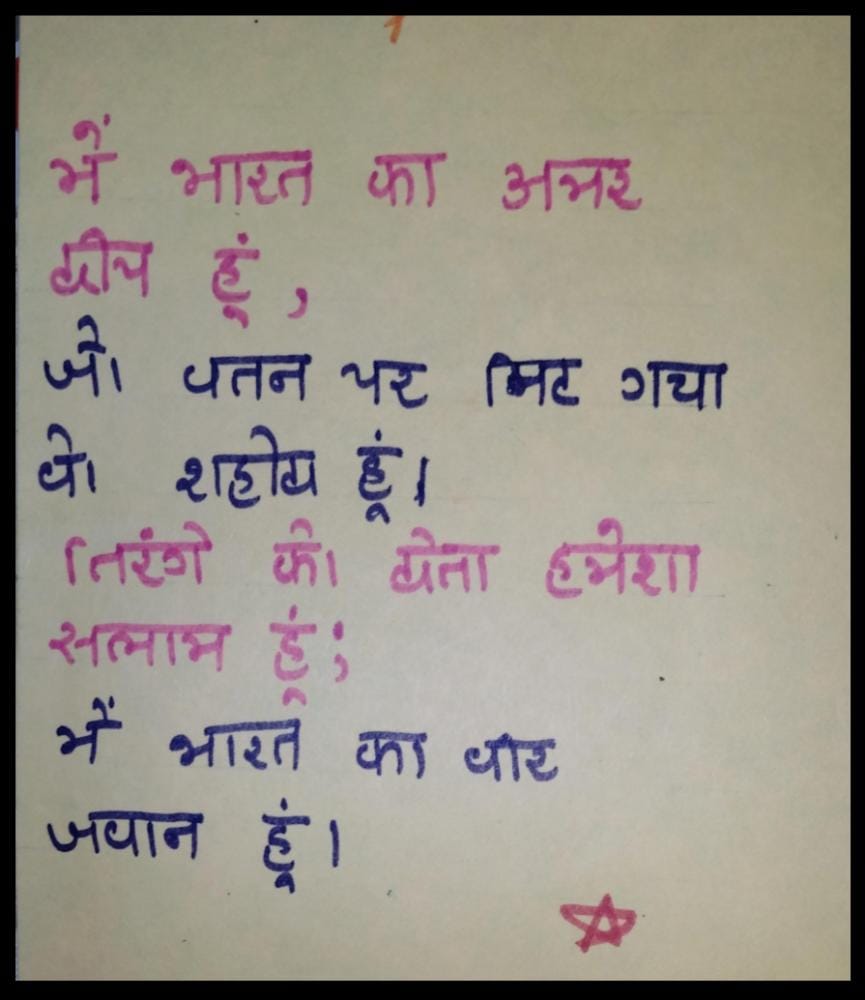 मैं भारत का अमर
दीप हूं,
जो वतन पर मिट गया
वो शहीद हूं।
तिरंगे को देता हमेशा
सलाम हूं;
मैं भारत का वीर
जवान हूं।